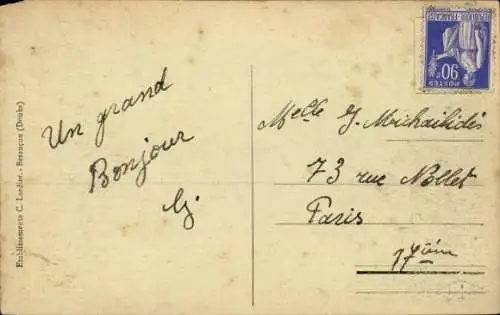 Un grand
Bonjour
G.
Melle J. Michailidis
73 rue Nollet
Paris
17ième
Etablissements C. Lardier. - Besançon (Doubs)
REPUBLIQUE FRANÇAISE
POSTES
90c